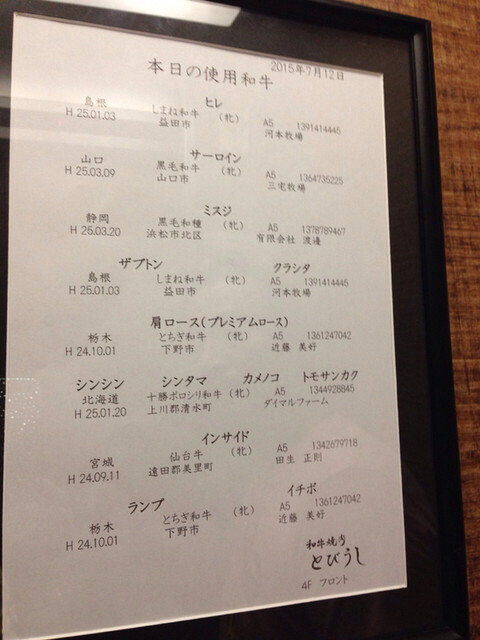 2015年7月12日
本日の使用和牛
ヒレ
島根 しまね和牛 (牝) A5 1391414445
H 25.01.03 益田市 河本牧場
サーロイン
山口 黒毛和牛 (牝) A5 1364735225
H 25.03.09 山口市 三宅牧場
ミスジ
静岡 黒毛和種 (牝) A5 1378789467
H 25.03.20 浜松市北区 有限会社 渡邉
ザブトン クラシタ
島根 しまね和牛 (牝) A5 1391414445
H 25.01.03 益田市 河本牧場
肩ロース(プレミアムロース)
栃木 とちぎ和牛 (牝) A5 1361247042
H 24.10.01 下野市 近藤 美好
シンシン シンタマ カメノコ トモサンカク
北海道 十勝ポロシリ和牛 (牝) A5 1344928845
H 25.01.20 上川郡清水町 ダイマルファーム
インサイド
宮城 仙台牛 (牝) A5 1342679718
H 24.09.11 遠田郡美里町 田生 正則
ランプ イチボ
栃木 とちぎ和牛 (牝) A5 1361247042
H 24.10.01 下野市 近藤 美好
和牛焼肉
とびうし
4F フロント